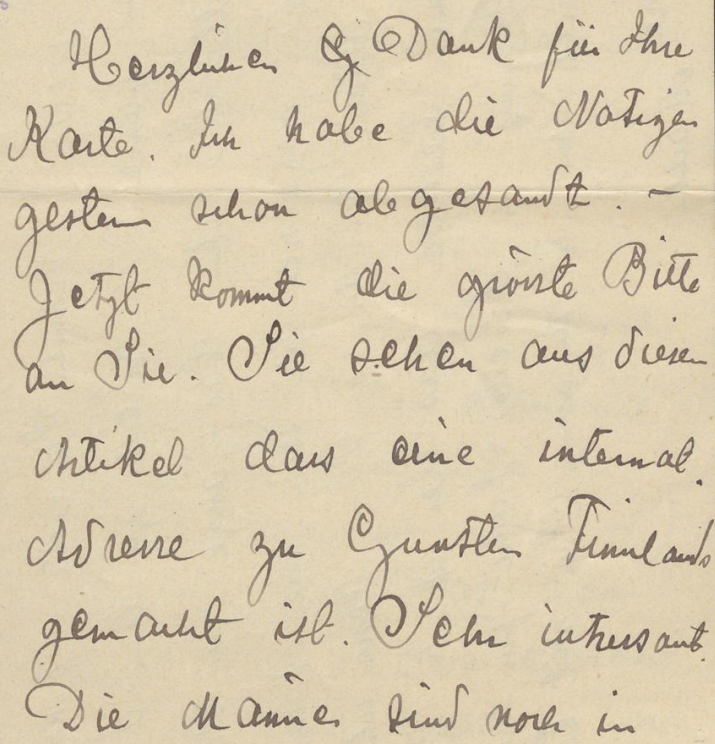 Herzlichen Dank für Ihre
Karte. Ich habe die Notizen
gestern schon abgesandt. –
Jetzt kommt die grösste Bitte
an Sie. Sie sehen aus diesen
Artikel dass eine internat.
Adresse zu Gunsten Finnlands
gemacht ist. Sehr intressant.
Die Männer sind noch in